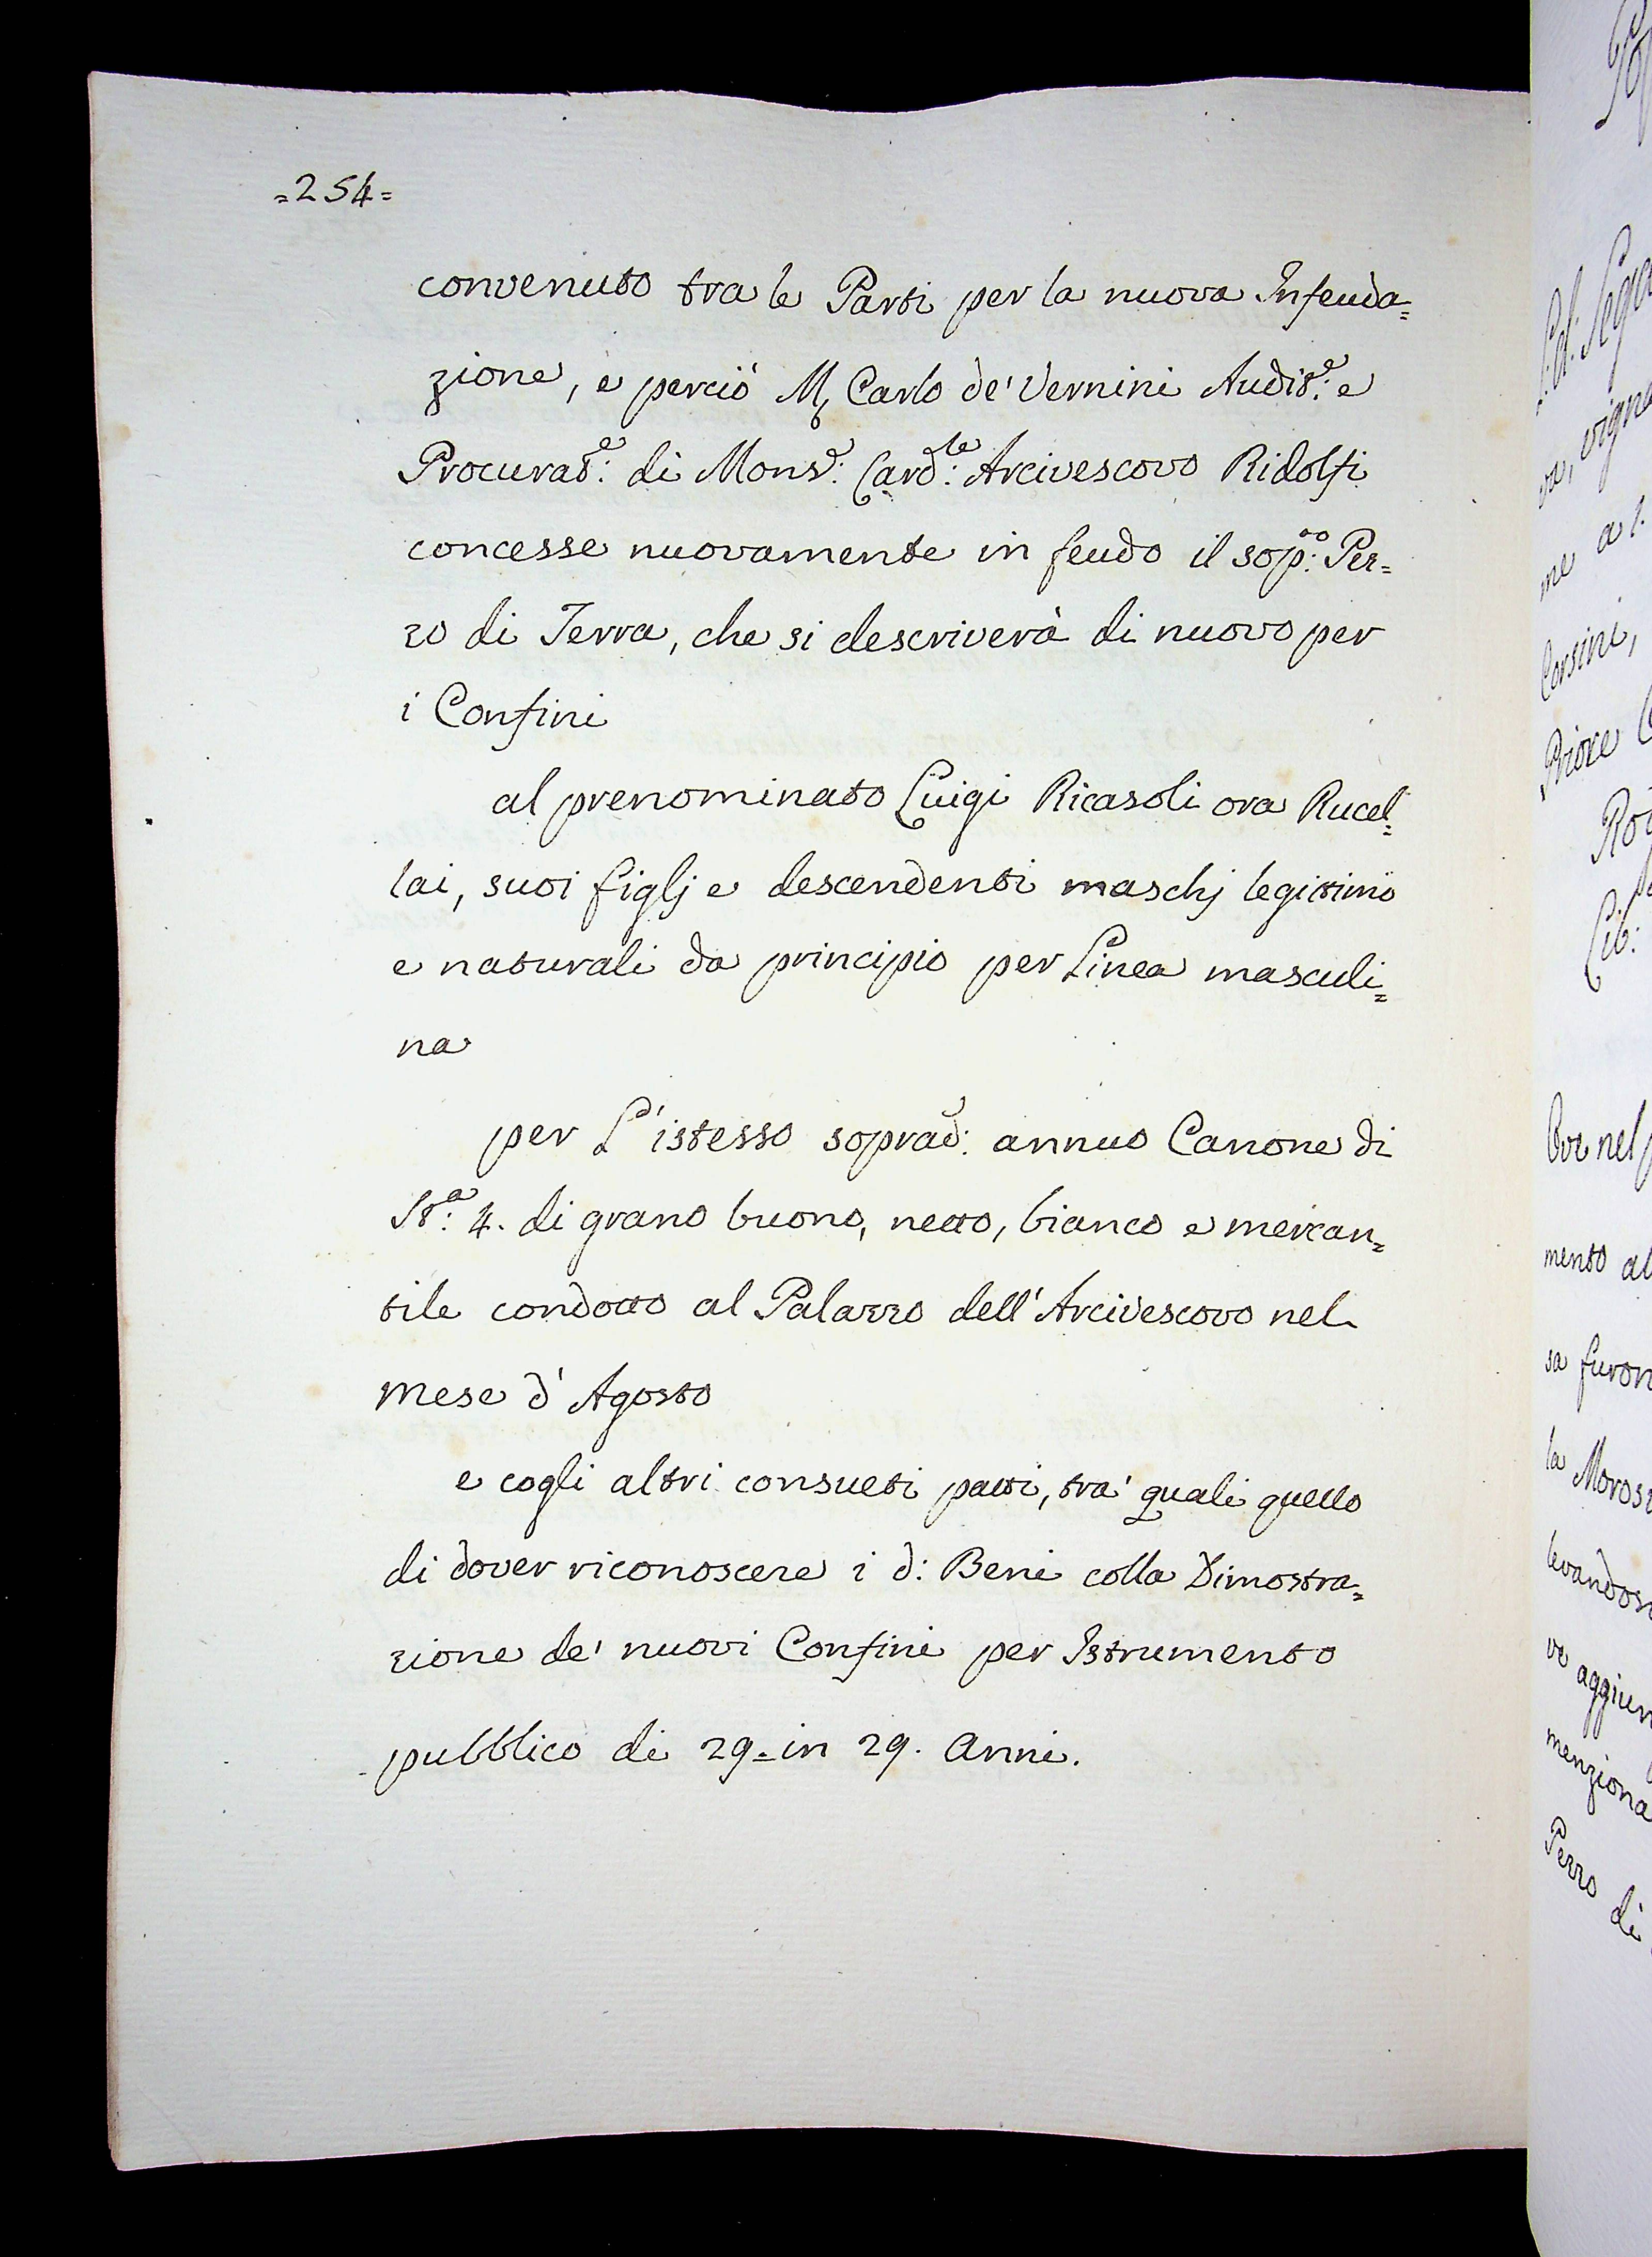 =254=
convenuto tra le Parti per la nuova Infeuda=
zione, e perciò M, Carlo de' Vernini Audit:e e
Procurat:e di Mons:e Card:le Arcivescovo Ridolfi
concesse nuovamente in feudo il sop:to Pez=
zo di Terra, che si descriverà di nuovo per
i Confini
al prenominato Luigi Ricasoli ora Rucel=
lai, suoi figlj e descendenti maschj legittimi
e naturali da principio per Linea masculi=
na
per L'istesso soprad: annuo Canone di
St:a 4. di grano buono, netto, bianco e mercan=
tile condotto al Palazzo dell'Arcivescovo nel
mese d'Agosto
e cogli altri consueti patti, tra' quali quello
di dover riconoscere i d: Beni colla Dimostra=
zione de' nuovi Confini per Istrumento
pubblico di 29. in 29. anni.
Corsini,
Priore
Lib:
mento al
sa furon
la Moros
levandos
ve aggiun
menziona
Pezzo di